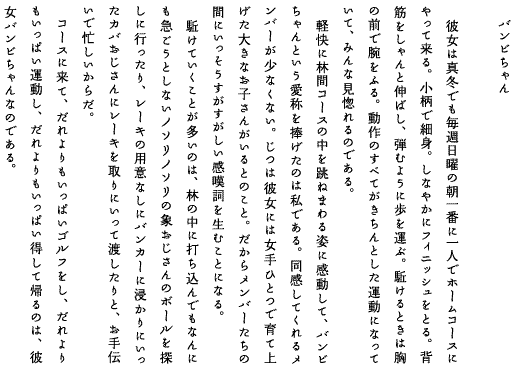 バンビちゃん
彼女は真冬でも毎週日曜の朝一番に一人でホームコースに
やって来る。小柄で細身。しなやかにフィニッシュをとる。背
筋をしゃんと伸ばし、弾むように歩を運ぶ。駈けるときは胸
の前で腕をふる。動作のすべてがきちんとした運動になって
いて、みんな見惚れるのである。
軽快に林間コースの中を跳ねまわる姿に感動して、バンビ
ちゃんという愛称を捧げたのは私である。同感してくれるメ
ンバーが少なくない。じつは彼女には女手ひとつで育て上
げた大きなお子さんがいるとのこと。だからメンバーたちの
間にいっそうすがすがしい感嘆詞を生むことになる。
駈けていくことが多いのは、林の中に打ち込んでもなんに
も急ごうとしないノソリノソリの象おじさんのボールを探
しに行ったり、レーキの用意なしにバンカーに浸かりにいっ
たカバおじさんにレーキを取りにいって渡したりと、お手伝
いで忙しいからだ。
コースに来て、だれよりもいっぱいゴルフをし、だれより
もいっぱい運動し、だれよりもいっぱい得して帰るのは、彼
女バンビちゃんなのである。